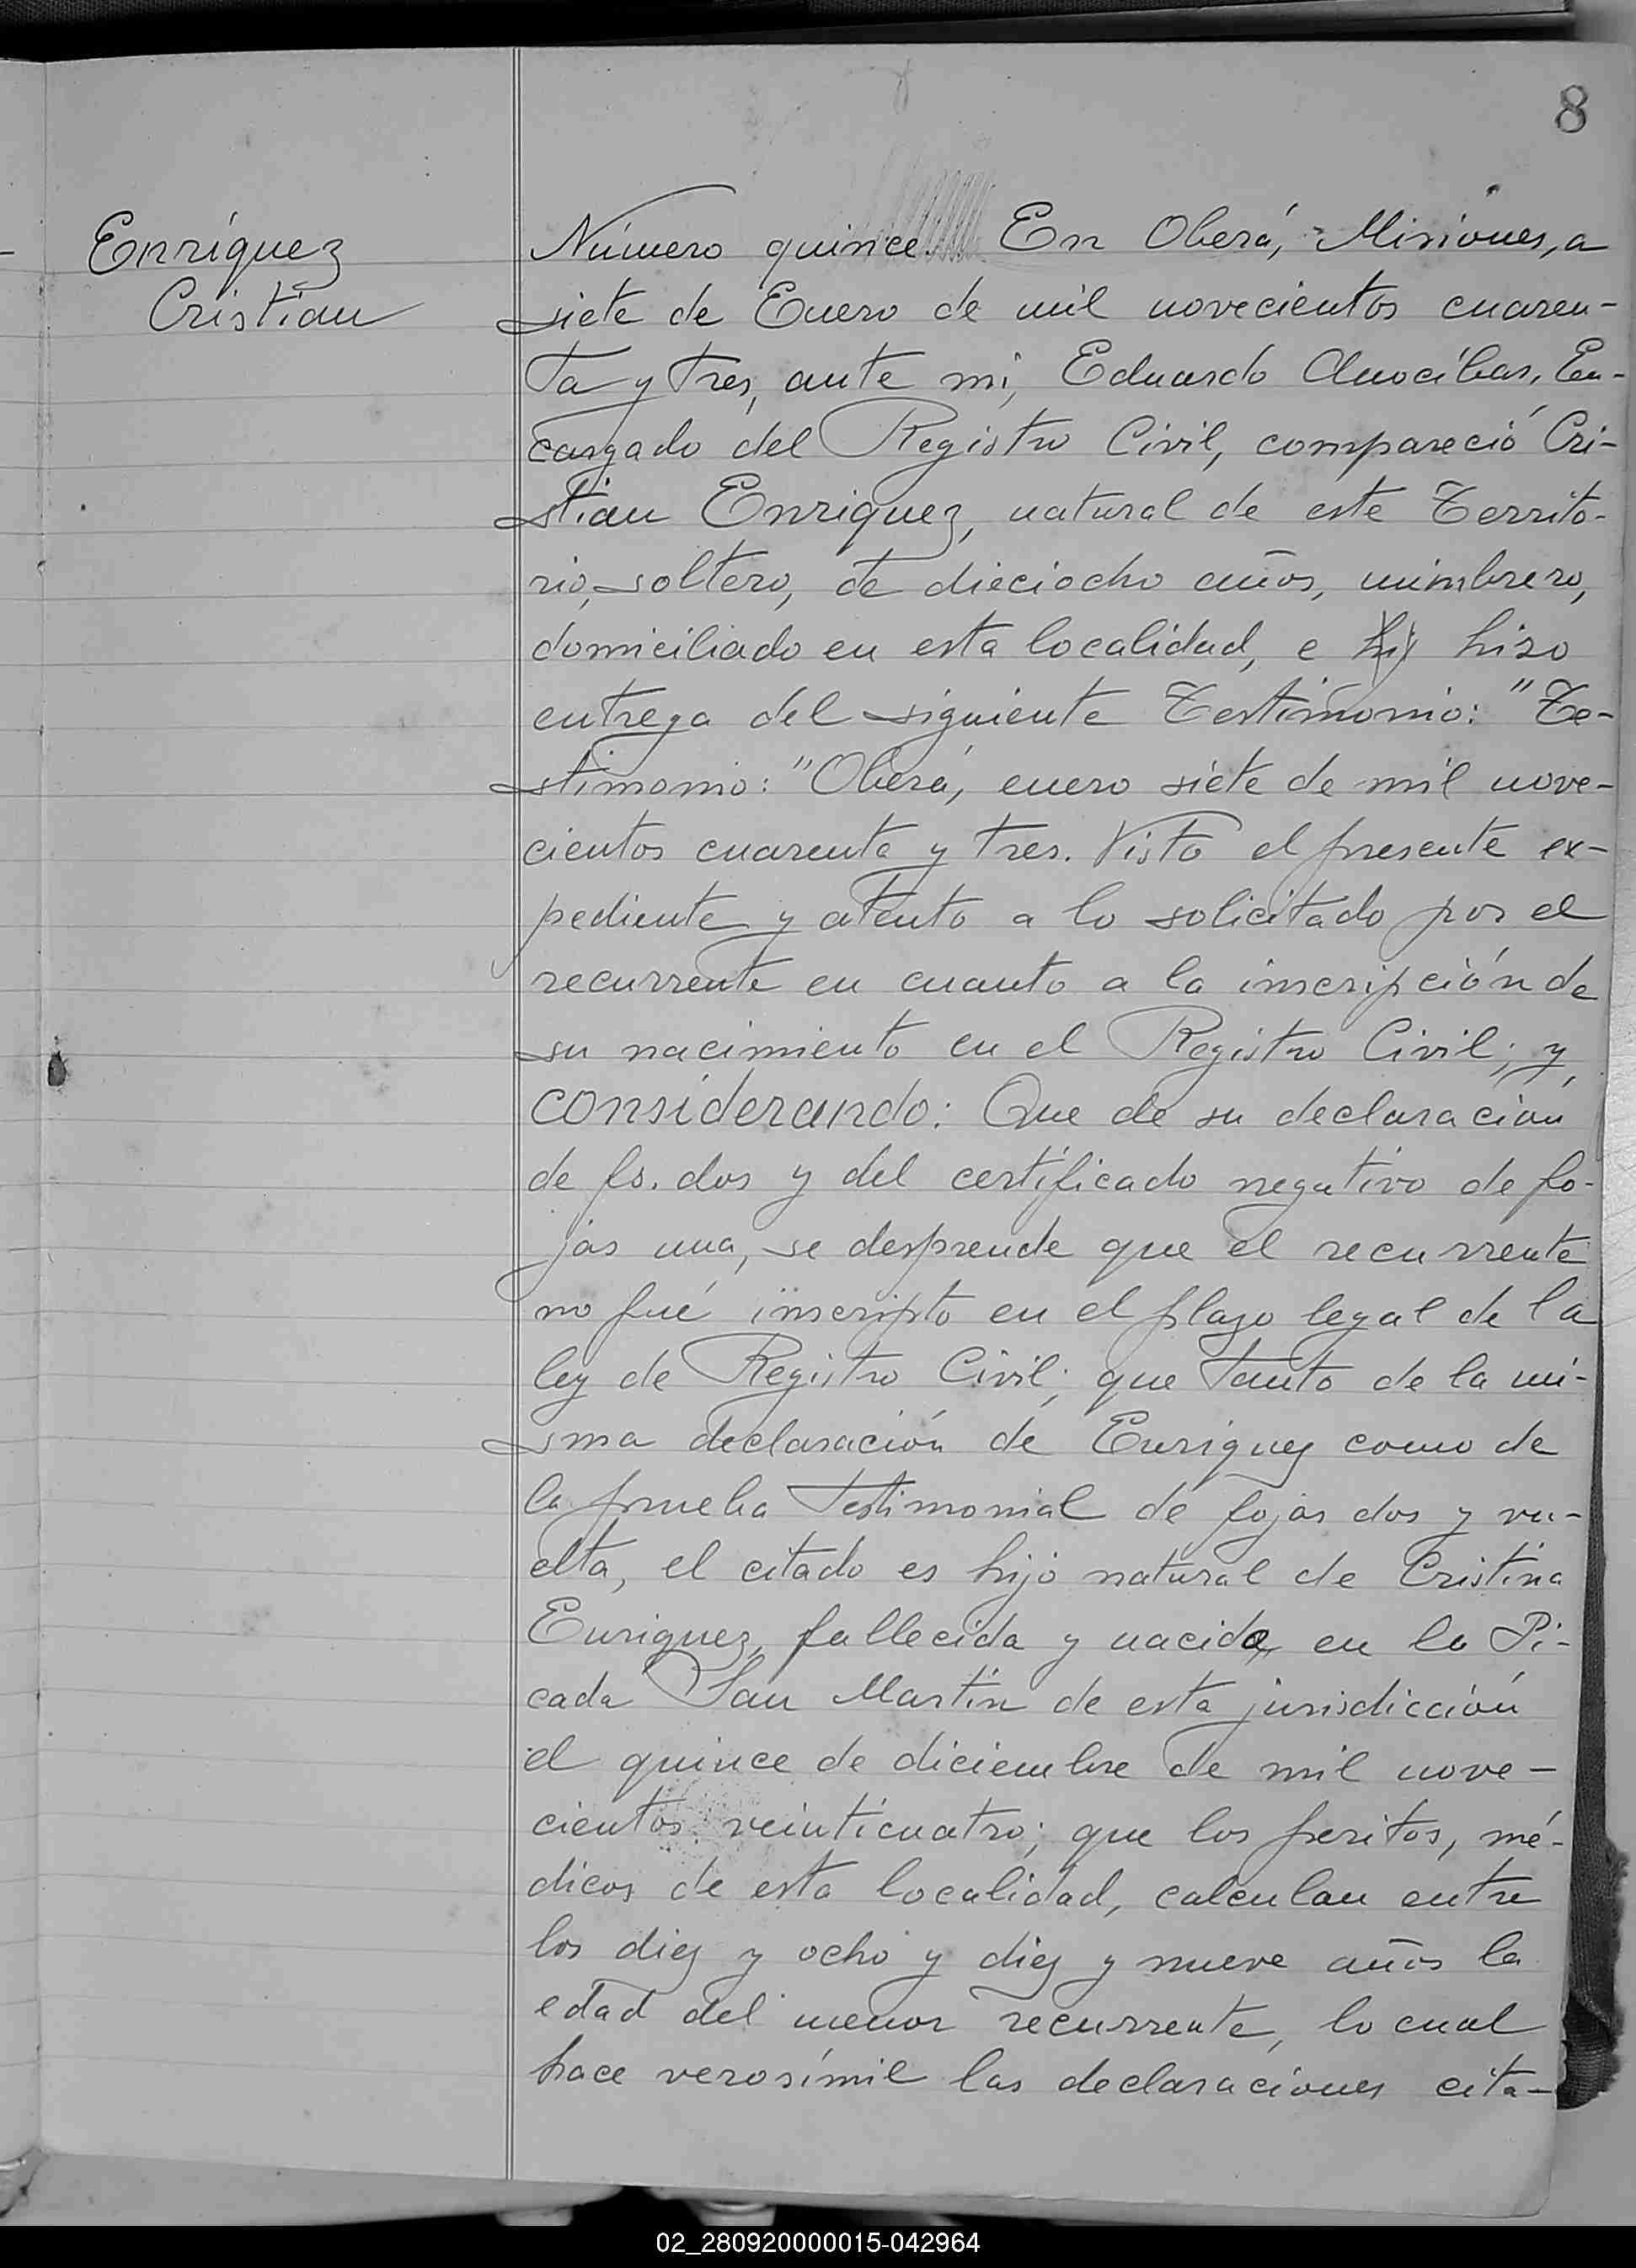 8
Enríquez
Cristian
Número quince. En Oberá, Misiones, a
siete de Enero de mil novecientos cuaren-
ta y tres, ante mi, Eduardo Anocíbar, En-
cargado del Registro Civil, compareció Cri-
stian Enriquez, natural de este Territo-
rio, soltero, de dieciocho años, mimbrero,
domiciliado en esta localidad, e hizo
entrega del siguiente Testimonio: "Te-
stimonio: "Oberá, enero siete de mil nove-
cientos cuarenta y tres. Visto el presente ex-
pediente y atento a lo solicitado por el
recurrente en cuanto a la inscripción de
su nacimiento en el Registro Civil; y,
considerando: Que de su declaración
de fs. dos y del certificado negativo de fo-
jas una, se desprende que el recurrente
no fué inscripto en el plazo legal de la
ley de Registro Civil; que tanto de la mi-
sma declaración de Enriquez como de
la prueba testimonial de fojas dos y vu-
elta, el citado es hijo natural de Cristina
Enriquez, fallecida y nacido en la Pi-
cada San Martín de esta jurisdicción
el quince de diciembre de mil nove-
cientos veinticuatro; que los peritos, mé-
dicos de esta localidad, calculan entre
los diez y ocho y diez y nueve años la
edad del menor recurrente, lo cual
hace verosímil las declaraciones cita-
02_280920000015-042964